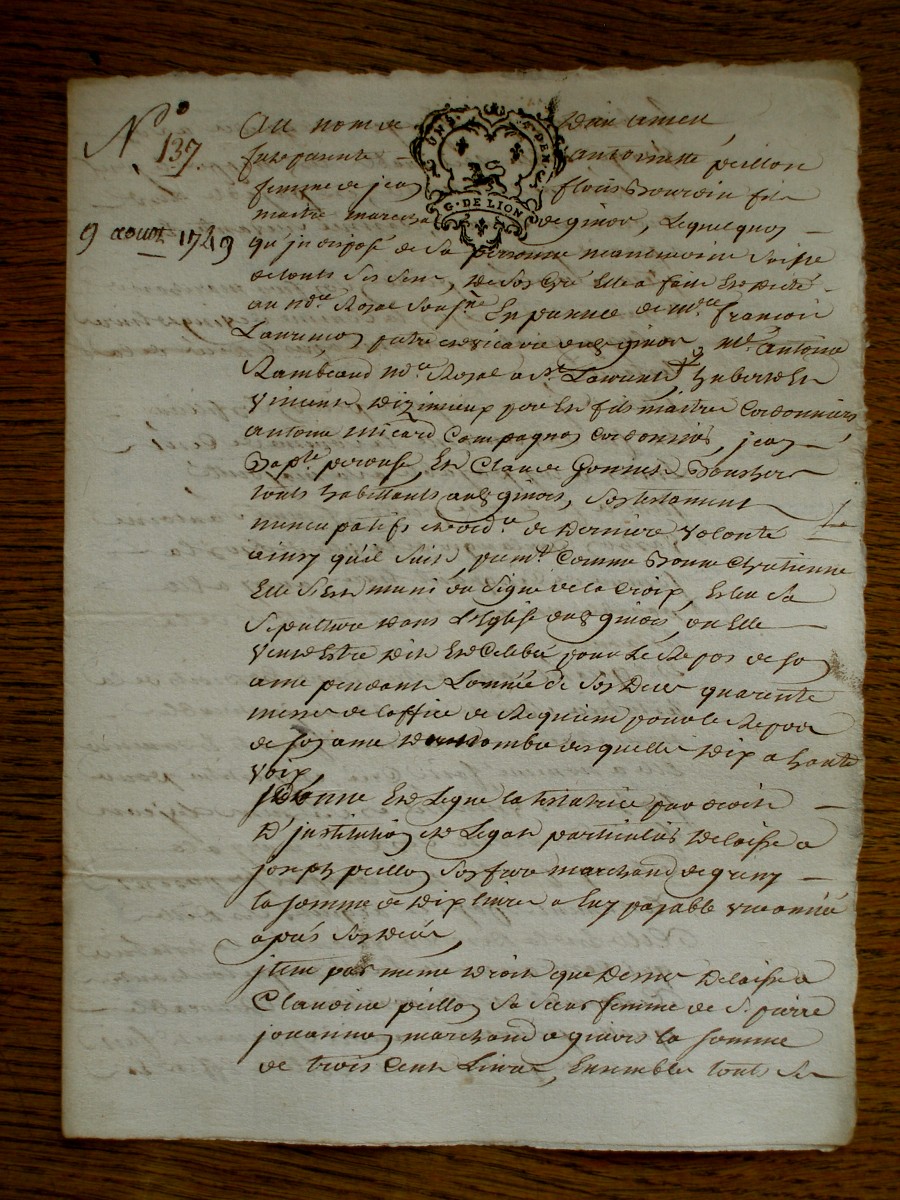 N° 137.
9 aoust 1749
Au nom de Dieu amen
fut presente antoinette peillon
femme de jean floris Bourdin fils
maitre marechal de ginor, Lequel quoy
qu'indisposé de sa personne neantmoins saisie
de touts ses sens, de son gré Elle a fait Et dicté
au nore Royal soussné En presence de mre françois
Laurenson pretre et vicaire audt ginor, me antoine
Rambaud nore Royal a st Laurent, hubert Et
Vincent, Dizimieux pere Et fils maitres Cordonniers
antoine micard Compagnon Cordonnier, jean
Bapte perouse, Et Claude Gonnet Boucher
touts habittants audt ginois, son testament
nuncupatif et ordre de Derniere Volonté
ainsy qu'il suit, premt Comme Bonne Chretienne
Elle s'est muni du signe de la Croix, Eslu sa
sepulture dans L'Eglise dudt ginois, ou Elle
veut Estre Dit Et Celebré pour le Repos de son
ame pendant L'année de son Deces quarente
messes de l'office de Requiem pour le Repos
de son ame du nombre desquelles Dix a haute
voix,
Donne Et Legue la testatrice par droit
D'institution et Legat particulier Delaisse a
joseph peillon son frere marchand de
la somme de Dix livres a luy payable une année
apres son Deces,
jtem par même Droit que Dessus Delaisse a
Claudine peillon sa sœur femme de sr pierre
jouannon marchand a givors la somme
de trois Cent Livres, Ensemble touts ses
G. DE LION